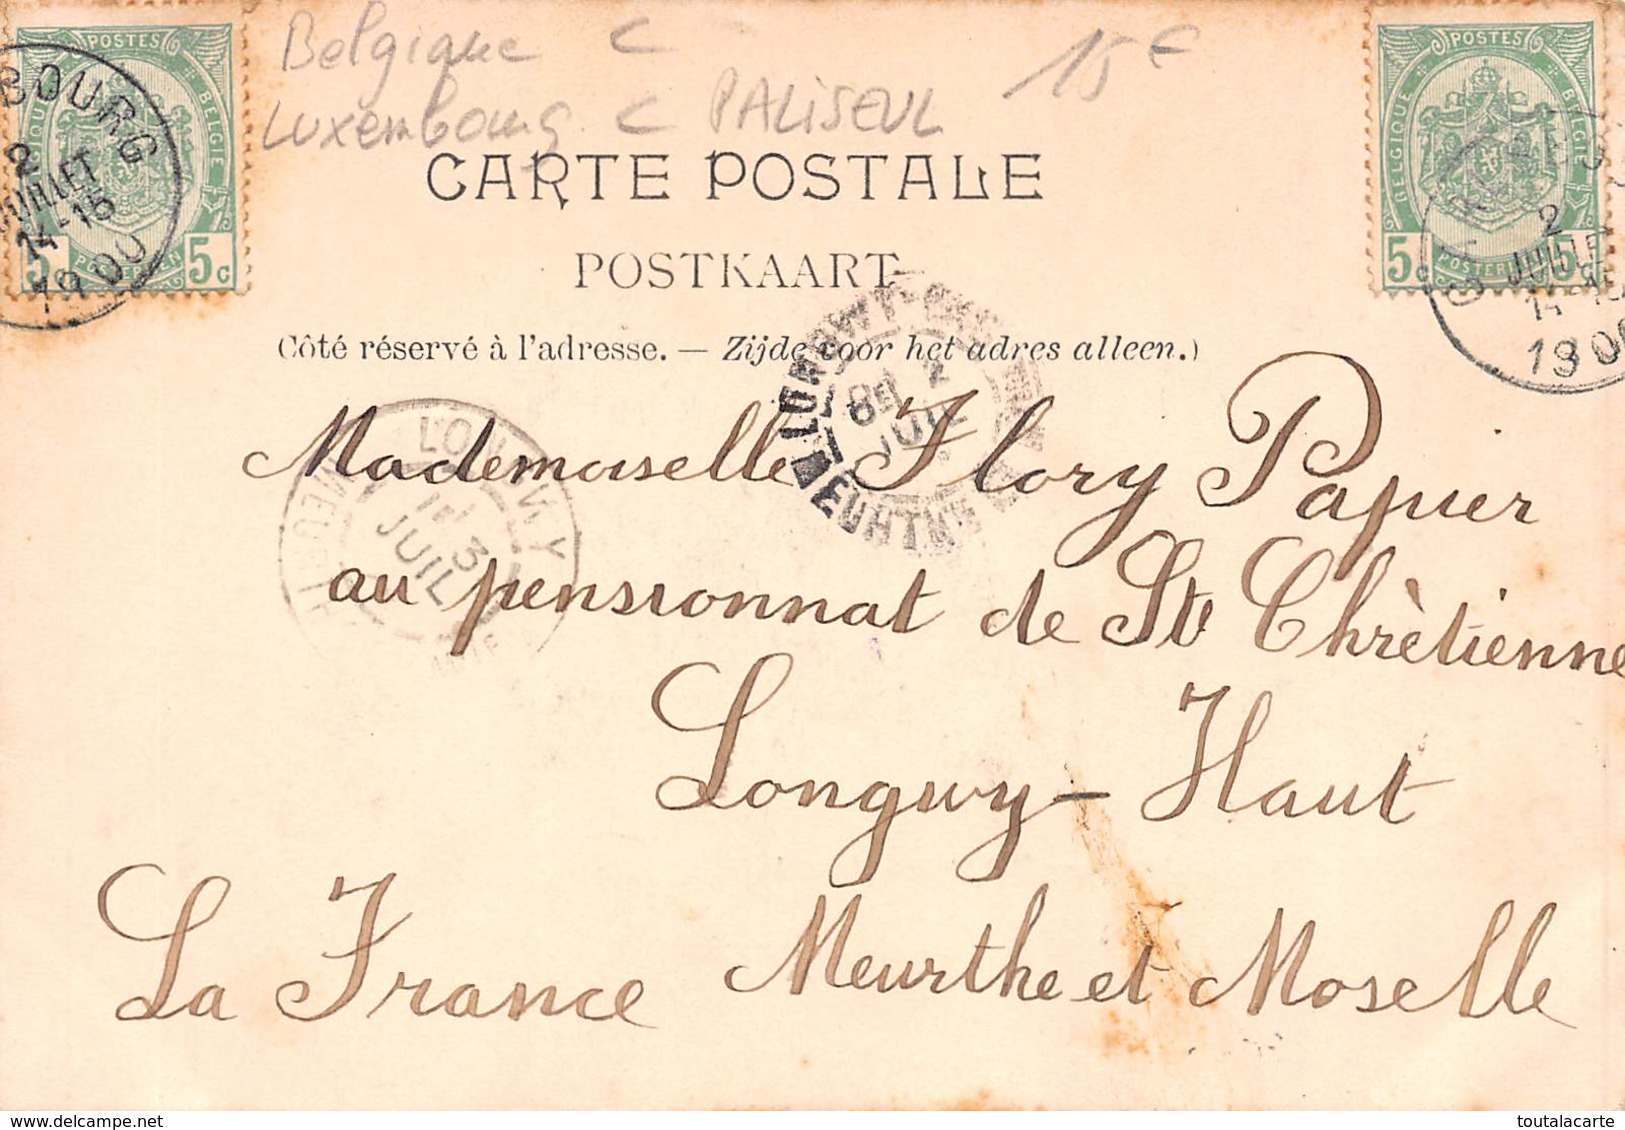 Belgique C
Luxembourg C PALISEUL 15 €
POSTES
BELGIQUE BELGIE
5c 5c
BOURG
2
JUILLET
14-15
1900
POSTES
BELGIQUE BELGIE
5c 5c
2
JUILLE
1900
CARTE POSTALE
POSTKAART
(Côté réservé à l'adresse. — Zijde voor het adres alleen.)
LONGWY
2
JUIL
LONGWY
3
JUIL
Mademoiselle Flory Papier
au pensionnat de Ste Chrètienne
Longwy-Haut
La France Meurthe et Moselle
delcampe.net
toutalacarte